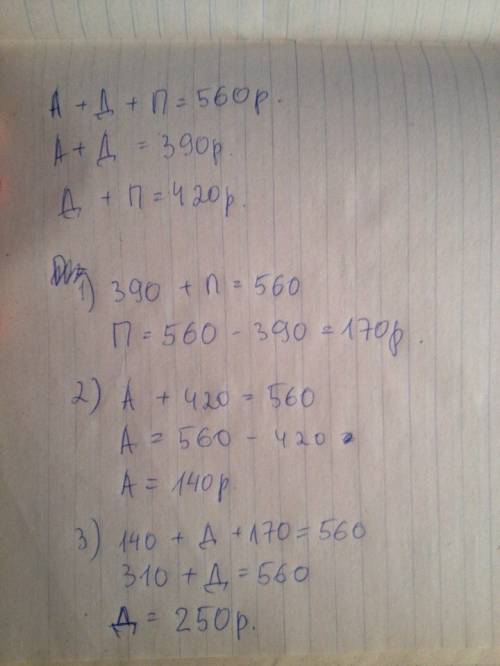 А + Д + П = 560р.
А + Д = 390р.
Д + П = 420р.
1) 390 + П = 560
П = 560 - 390 = 170р.
2) А + 420 = 560
А = 560 - 420
А = 140р.
3) 140 + Д + 170 = 560
310 + Д = 560
Д = 250р.